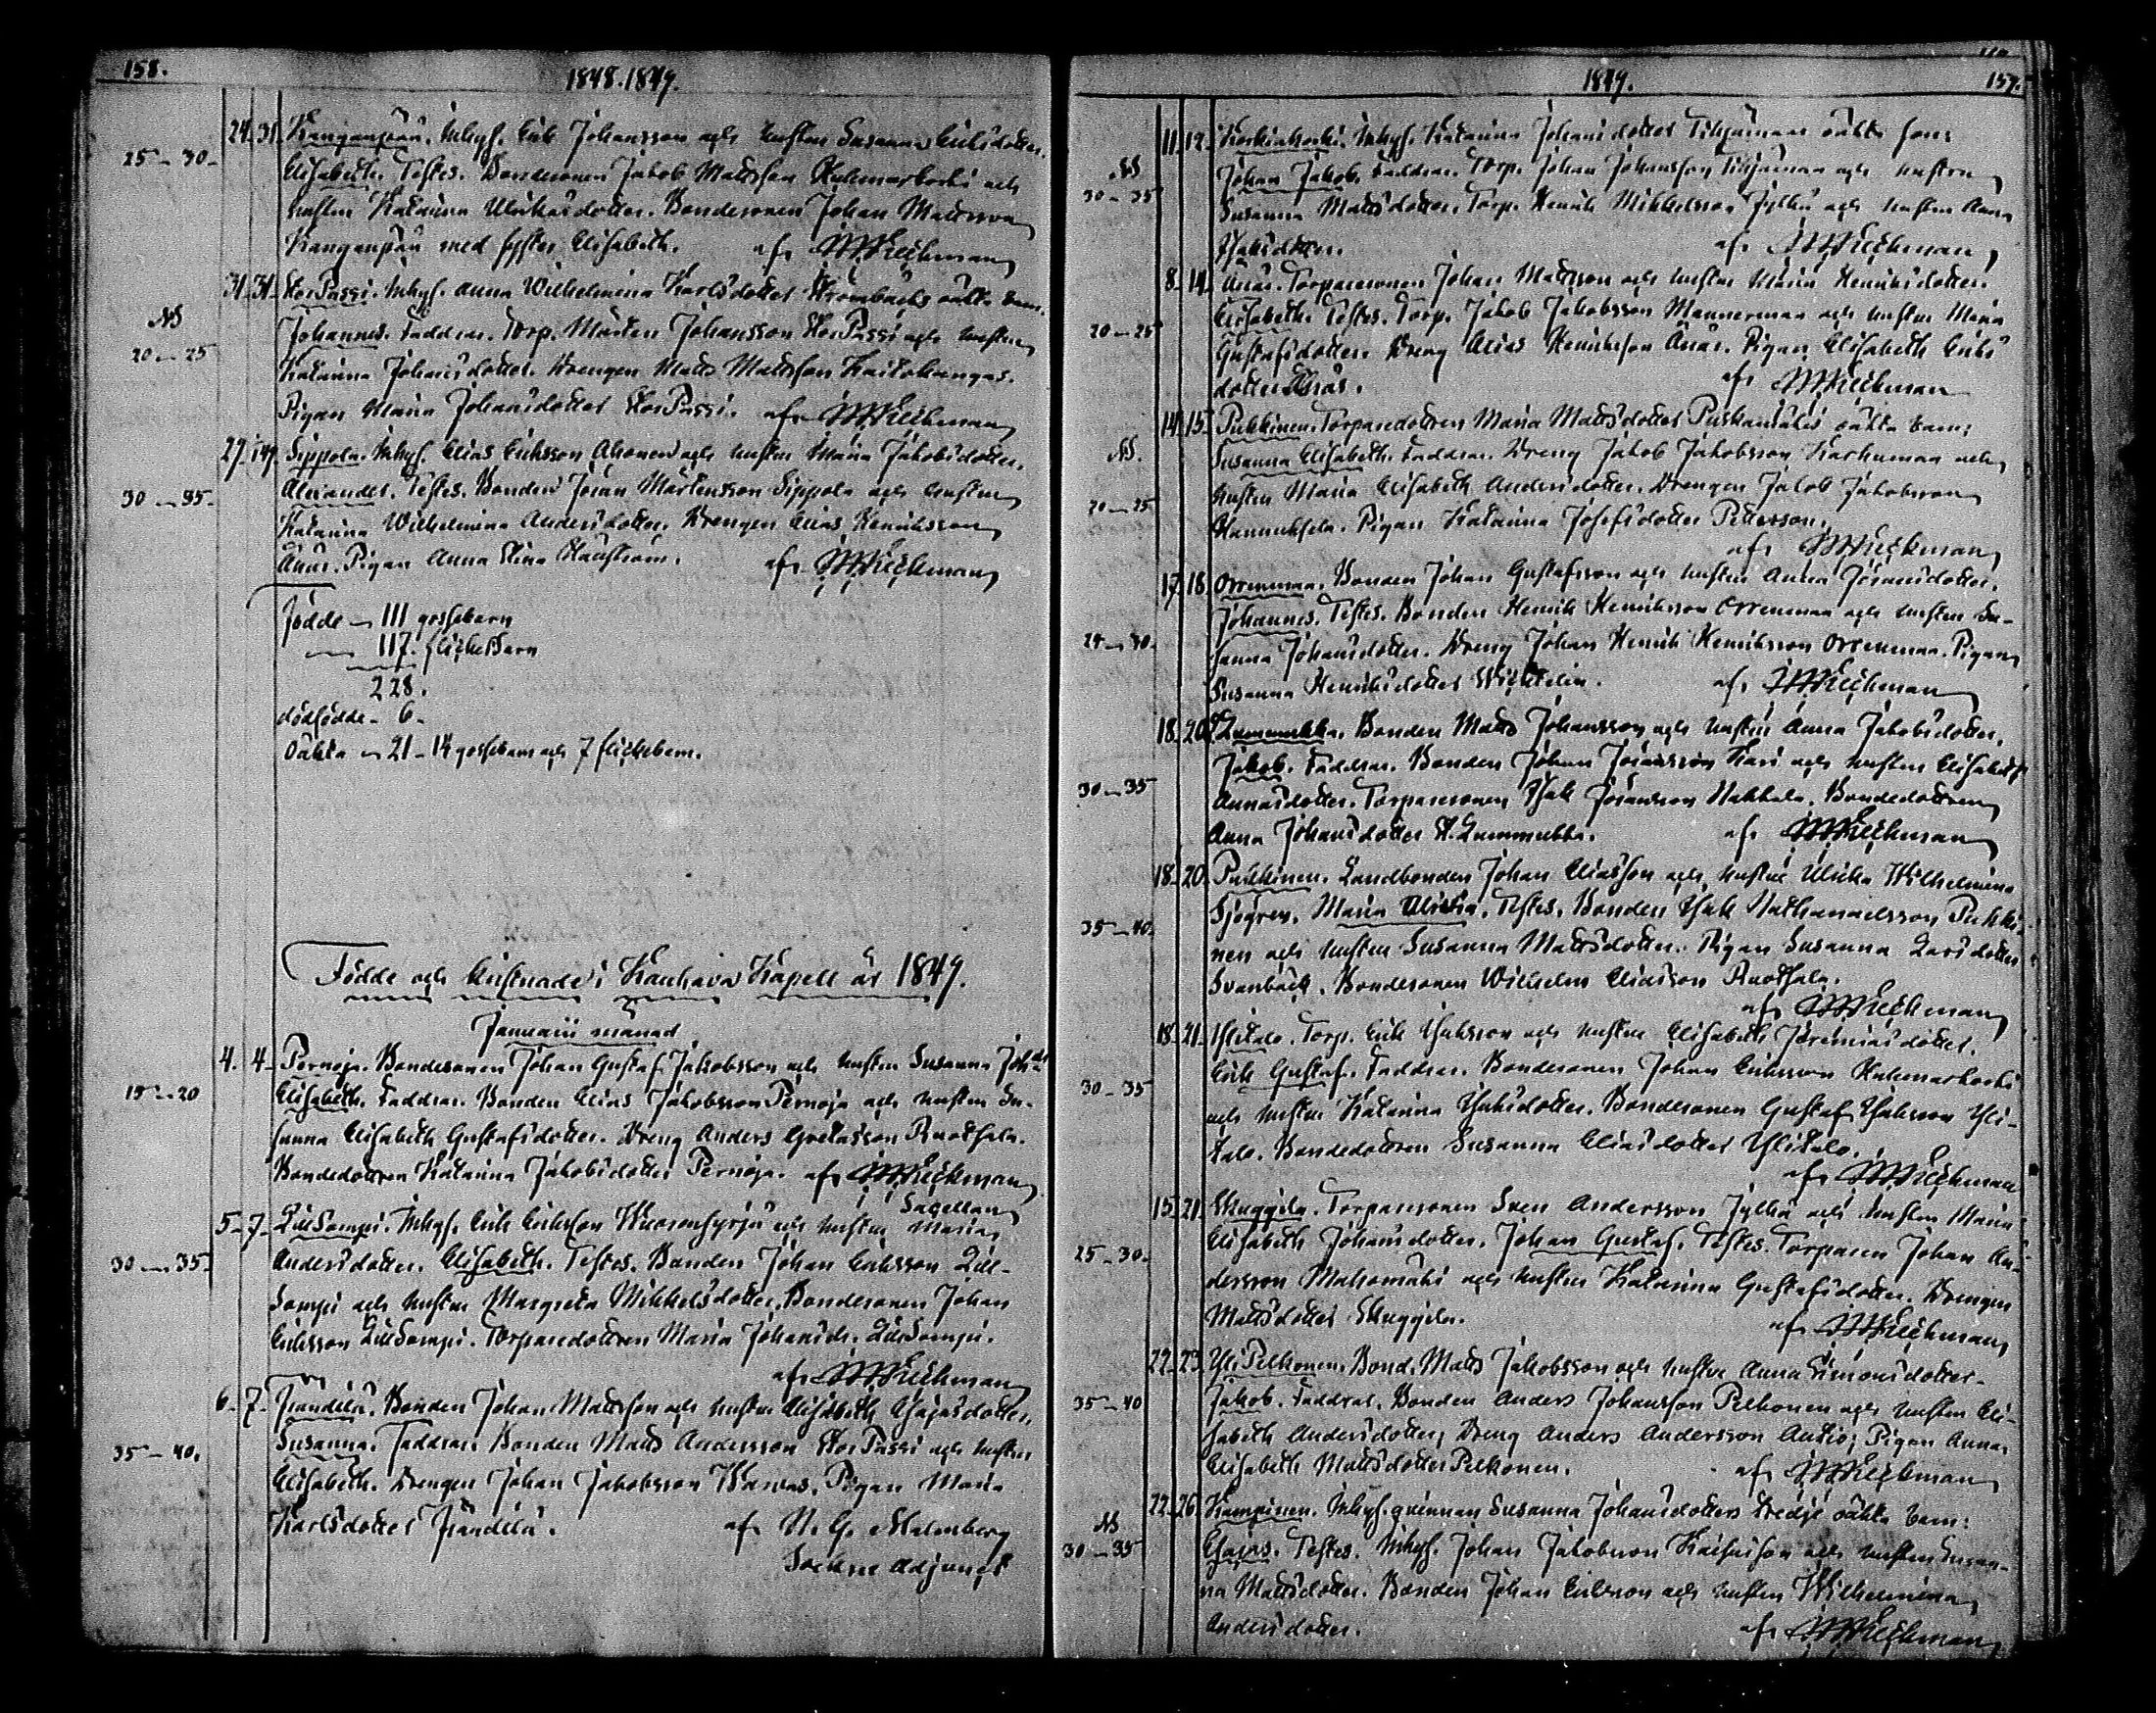 158.
1848.1849.
24. 31. Kanganpää. Inhys. Erik Johansson och hustru Susanna Eriksdotter.
25-30- Elisabeth. Testes. Bondesonen Jakob Mattsson och
hustru Katarina Ulrikasdotter. Bondesonen Johan Mattsson
Kanganpää med syster Elisabeth. af JMKeckman
31. 31. StorPassi. Inhys. Anna Wilhelmina Karlsdotter oäkta barn.
NB
20-25 Johannes. Faddrar. Torp. Mårten Johansson StorPassi och hustru
Katarina Johansdotter. Drengen Matts Mattsson
Pigan Maria Johansdotter StorPassi. af JMKeckman
27. Sippola. Inhys. Elias Eriksson Ahonen och hustru Maria Jakobsdotter.
30-35- Alexander. Testes. Bonden Jöran Mårtensson Sippola och hustru
Katarina Wilhelmina Andersdotter. Drengen Elias Henriksson
Änär. Pigan Anna Stina af JMKeckman
födde - 111 gossebarn
117. flickebarn
228.
dödfödde - 6-
Oäkta - 21 - 14 gossebarn och 7 flickebarn.
Födde och Christnade i Kauhava Kapell år 1849.
Januarii månad
4. 4- Pernaja. Bondesonen Johan Gustaf Jakobsson och hustru Susanna Joh:dr
15-20 Elisabeth. Faddrar. Bonden Elias Jakobsson Pernaja och hustru Su-
sanna Elisabeth Gustafsdotter. Dreng Anders Ruotsala.
Bondedottren Katarina Jakobsdotter Pernaja. af JMKeckman
Sacellan
5-7- LillSompi. Inhys. Erik Eriksson och hustru Maria
30-35- Andersdotter. Elisabeth. Testes. Bonden Johan Eriksson Lill-
Sompi och hustru Margreta Mikkelsdotter. Bondesonen Johan
Eriksson LillSompi. Torparedottren Maria Johansdr. LillSompi.
af JMKeckman
6-7- Frändilä. Bonden Johan Mattsson och hustru Elisabeth Esajasdotter.
35-40. Susanna. Faddrar. Bonden Matts Andersson StorPassi och hustru
Elisabeth. Drengen Johan Jakobsson Warvas. Pigan Maria
Karlsdotter Frändilä. af N. G. Malmberg
Sockne adjunct
1849.
157.
11. 12. Koskinkoski. Inhys. Katarina Johansdotter oäkta son:
NB
30-35 Johan Jakob. Faddrar. Torp. Johan Johansson och hustru
Susanna Mattsdotter. Torp. Henrik Mikkelsson Jylhä och hustru Anna
Isaksdotter. af JMKeckman
8. 14. Änär. Torparesonen Johan Mattsson och hustru Maria Henriksdotter.
20-25 Elisabeth. Testes. Torp. Jakob Jakobsson Mannermaa och hustru Maria
Gustafsdotter. Dreng Elias Henriksson Änär. Pigan Elisabeth Eriks
dotter af JMKeckman
14. 15. Pukkinen. Torparedottren Maria Mattsdotter oäkta barn:
NB.
20-25 Susanna Elisabeth. Faddrar. Dreng Jakob Jakobsson och
hustru Maria Elisabeth Andersdotter. Drengen Jakob Jakobsson
Hannuksela. Pigan Katarina Josefsdotter Pettersson.
af JMKeckman
17. 18. Orrenmaa. Bonden Johan Gustafsson och hustru Anna Jöransdotter.
Johannes. Testes. Bonden Henrik Henriksson Orrenmaa och hustru Su-
25-30. sanna Johansdotter. Dreng Johan Henrik Henriksson Orrenmaa. Pigan
Susanna Henriksdotter af JMKeckman
18. 20. Lummukka. Bonden Matts Johansson och hustru Anna Jakobsdotter.
Jakob. Faddrar. Bonden Johan Jöransson Kari och hustru Elisabeth
30-35 Annasdotter. Torparesonen Isak Jöransson Hakkala. Bondedottren
Anna Johansdotter Lummukka. af JMKeckman
18. 20. Pukkinen. Landbonden Johan Eliasson och hustru Ulrika Wilhelmina
35-40. Sjögren. Maria Ulrika. Testes. Bonden Isak Nathanaelsson Pukki-
nen och hustru Susanna Mattsdotter. Pigan Susanna Larsdotter
Svanbäck. Bondesonen Wilhelm Eliasson Ruotsala.
af JMKeckman
18. 21. Ylitalo. Torp. Erik Isaksson och hustru Elisabeth Jeremiasdotter.
30-35 Erik Gustaf. Faddrar. Bondesonen Johan Eriksson
och hustru Katarina Isaksdotter. Bondesonen Gustaf Isaksson Yli-
talo. Bondedottren Susanna Eliasdotter Ylitalo.
af JMKeckman
15. 21. Skuggila. Torparesonen Sven Andersson Jylhä och hustru Maria
25-30. Elisabeth Johansdotter. Johan Gustaf. Testes. Torparen Johan An-
dersson och hustru Katarina Gustafsdotter. Drengen
Mattsdotter Skuggila. af JMKeckman
22. 23. YliPelkonen. Bond. Matts Jakobsson och hustru Anna Simonsdotter-
35-40 Jakob. Faddrar. Bonden Anders Johansson Pelkonen och hustru Eli-
sabeth Andersdotter; Dreng Anders Andersson Autio; Pigan Anna
Elisabeth Mattsdotter Pelkonen. af JMKeckman
22-26 Kamppinen. Inhys. qvinnan Susanna Johansdotters tredje oäkta barn:
NB
30-35 Esajas. Testes. Inhys. Johan Jakobsson och hustru Susan-
na Mattsdotter. Bonden Johan Eriksson och hustru Wilhelmina
Andersdotter. af JMKeckman